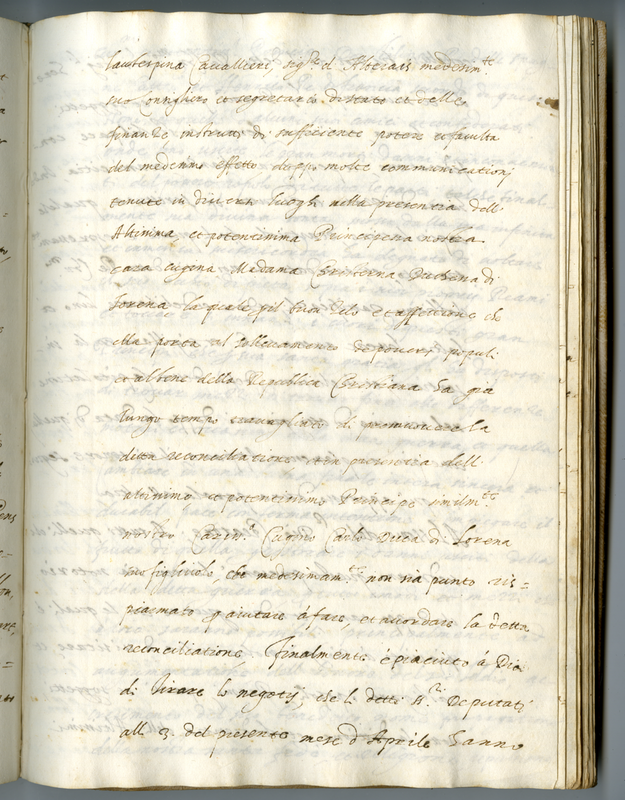 laubespina Cavalliere, sig.re d'Alteriue medesim.te
suo Consigliero et segretario di stato et delle
finanze instrutti di sufficiente potere et faculta
del medesimo effetto doppo molte communicationi
tenute in diuersi luoghi nella presencia dell'
Altissima et potentissima Principessa nostra
cara cugina Madama Cristierna, Duchessa di
Lorena la quale pil buon zelo et affettione che
ella porta al solleuamento de poueri popoli
et al bene della Republica Cristiana ha gia
lungo tempo trauagliato di promuouere la
ditta reconciliatione et in presencia dell'
altissimo et potentissimo Principe similm.te
nostro Cariss.o Cugino Carlo Duca di Lorena
suo figliuolo che medesimam.te non sia punto ris=
piarmato p aiutare à fare, et accordare la detta
reconciliatione, finalmente è piaciuto à Dio
di tirare lo negotij, che li detti Deputati
alli 3. del presente mese d'Aprile hanno